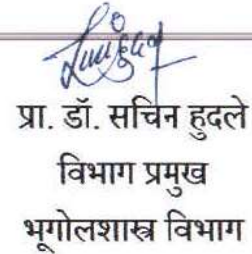 प्रा. डॉ. सचिन हुदले
विभाग प्रमुख
भूगोलशास्त्र विभाग